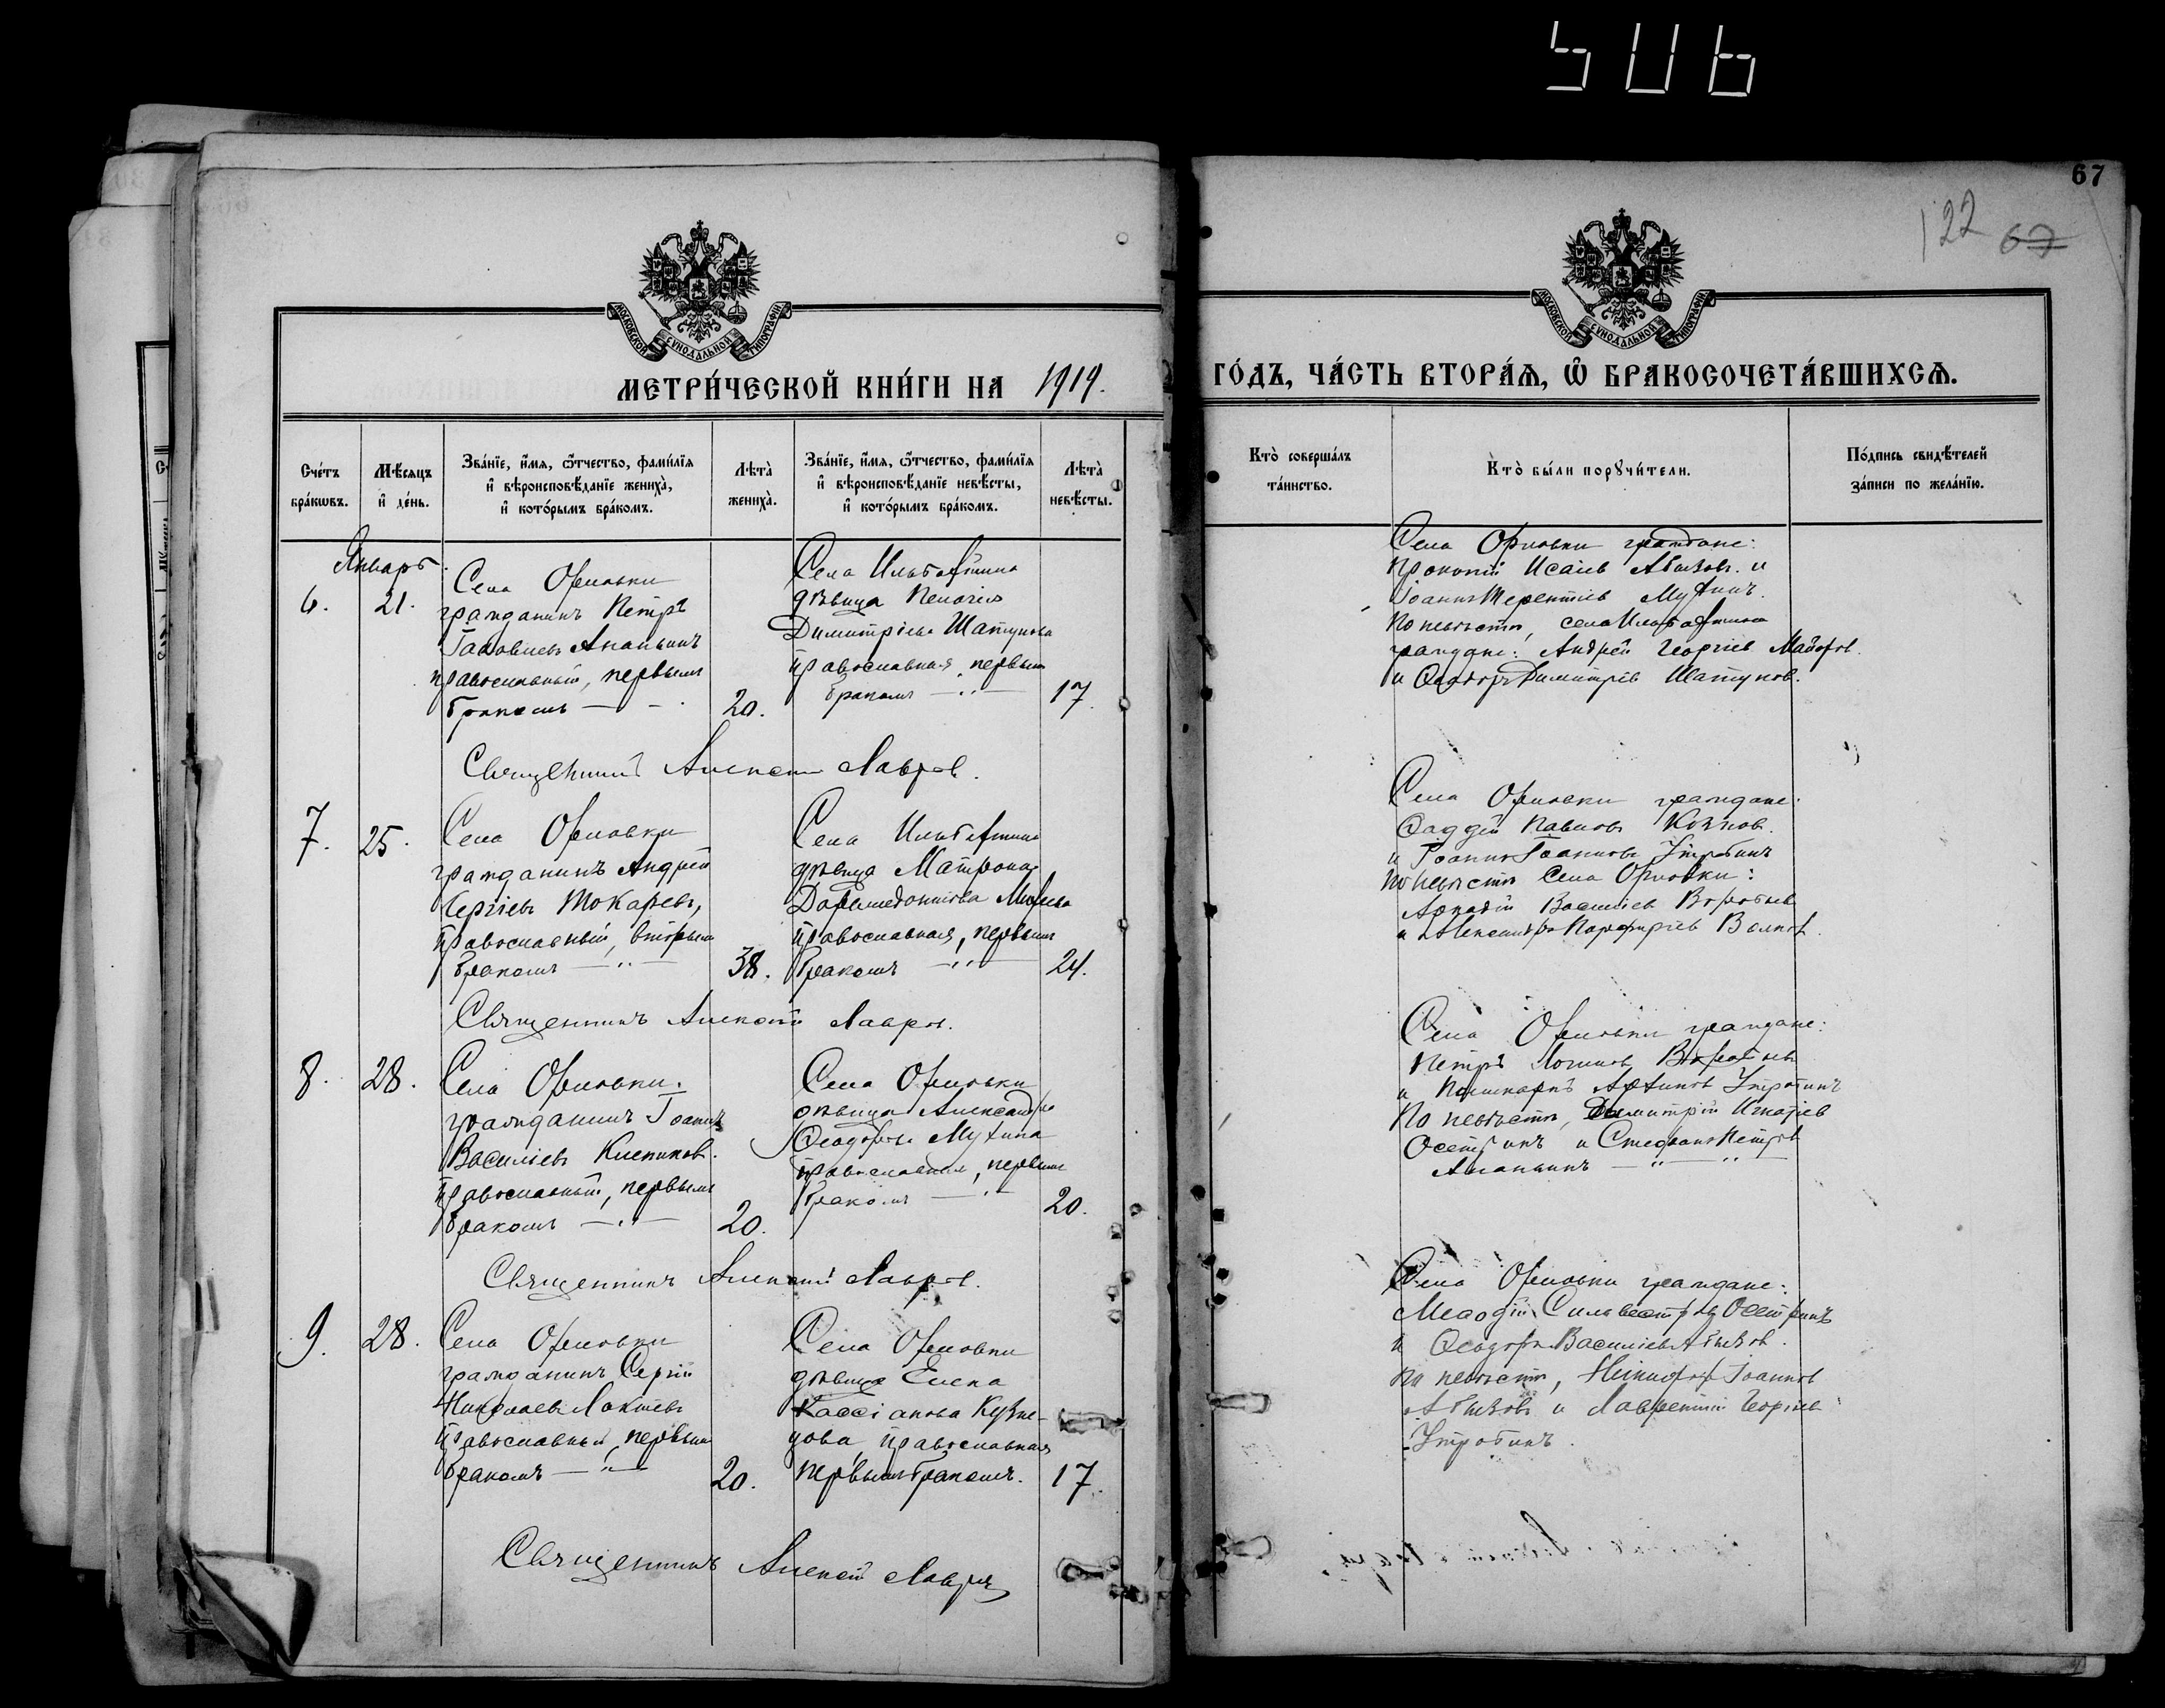 67
122 67
МОСКОВСКОЙ СУНОДАЛЬНОЙ ТИПОГРАФІИ
МОСКОВСКОЙ СУНОДАЛЬНОЙ ТИПОГРАФІИ
МЕТРИ́ЧЕСКОЙ КНИ́ГИ НА 1919. ГО́ДЪ, ЧА́СТЬ ВТОРА́Ѧ, Ѡ҆ БРАКОСОЧЕТА́ВШИХСѦ.
Сче́тъ бра́кѡвъ.
Мѣ́сѧцъ и҆ де́нь.
Зва́нїе, и҆́мѧ, ѻ҆́тчество, фамилїѧ и҆ вѣроисповѣ́данїе жениха̀, и҆ кото́рымъ бра́комъ.
Лѣта̀ жениха̀.
Зва́нїе, и҆́мѧ, ѻ҆́тчество, фамилїѧ и҆ вѣроисповѣ́данїе невѣ́сты, и҆ кото́рымъ бра́комъ.
Лѣта̀ невѣ́сты.
Кто̀ соверша́лъ та́инство.
Кто̀ бы́ли порꙋчи́тели.
По́дпись свидѣ́телей за́писи по жела́нїю.
Январь.
6.
21.
Села Орловки
гражданинъ Петръ
Ананьинъ
православный, первымъ
бракомъ
20.
Села
дѣвица Пелагія
Димитріева Шатунова
православная, первымъ
бракомъ
17.
Села Орловки граждане:
Прокопій Исаіев Абызов. и
Іоаннъ Терентіев Мухинъ.
По невѣстѣ, села
граждане: Андрей Георгіев Майоров.
и Ѳеодоръ Димитріев Шатунов.
Священникъ Алексій Лавров.
7.
25.
Села Орловки
гражданинъ Андрей
Сергіевъ Токаревъ,
православный, вторымъ
бракомъ
38.
Села
дѣвица Матрона
православная, первымъ
бракомъ
24.
Села Орловки граждане:
Ѳаддѣй Павловъ
и Іоаннъ Іоанновъ Утробинъ
По невѣстѣ Села Орловки:
Аркадій Василіев Воробьев
и Александръ Порфиріев Волков.
Священникъ Алексій Лавров.
8.
28.
Села Орловки.
гражданинъ Іоаннъ
Василіевъ
православный, первымъ
бракомъ
20.
Села Орловки
дѣвица Александра
Ѳеодорова Мухина
православная, первымъ
бракомъ
20.
Села Орловки граждане:
Петръ Логинов Воробьев
и Поликарпъ Архипов Утробинъ
По невѣстѣ, Димитрій Игнатіев
Осетринъ и Стефанъ Петров
Ананьинъ
Священникъ Алексій Лавров.
9.
28.
Села Орловки
гражданинъ Сергій
Николаевъ Локтевъ
православный, первымъ
бракомъ
20.
Села Орловки
дѣвица Елена
Кассіанова Кузне-
цова православная
первымъ бракомъ.
17.
Села Орловки граждане:
Меѳодій Сильвестров Осетринъ
и Ѳеодоръ Василіевъ Абызов.
По невѣстѣ, Никифор Іоаннов
Абызовъ и Лаврентій Георгіев
Утробинъ.
Священникъ Алексій Лавровъ